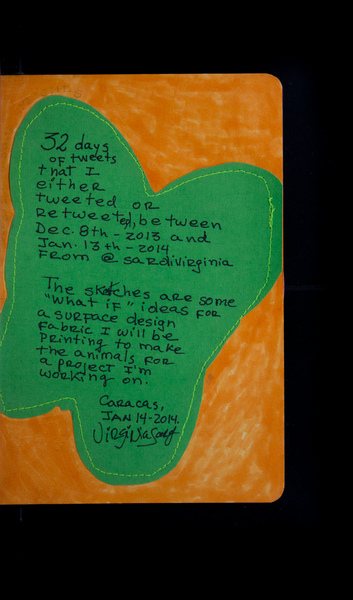 32 days
OF tweets
that I
either
tweeted OR
Retweeted, between
Dec. 8th - 2013 and
Jan. 13th - 2014
From @sardivirginia
The sketches are some
"what if" ideas FOR
a surface design
Fabric I will be
Printing to make
the animals FOR
a project I'm
working on.
Caracas,
JAN 14-2014.